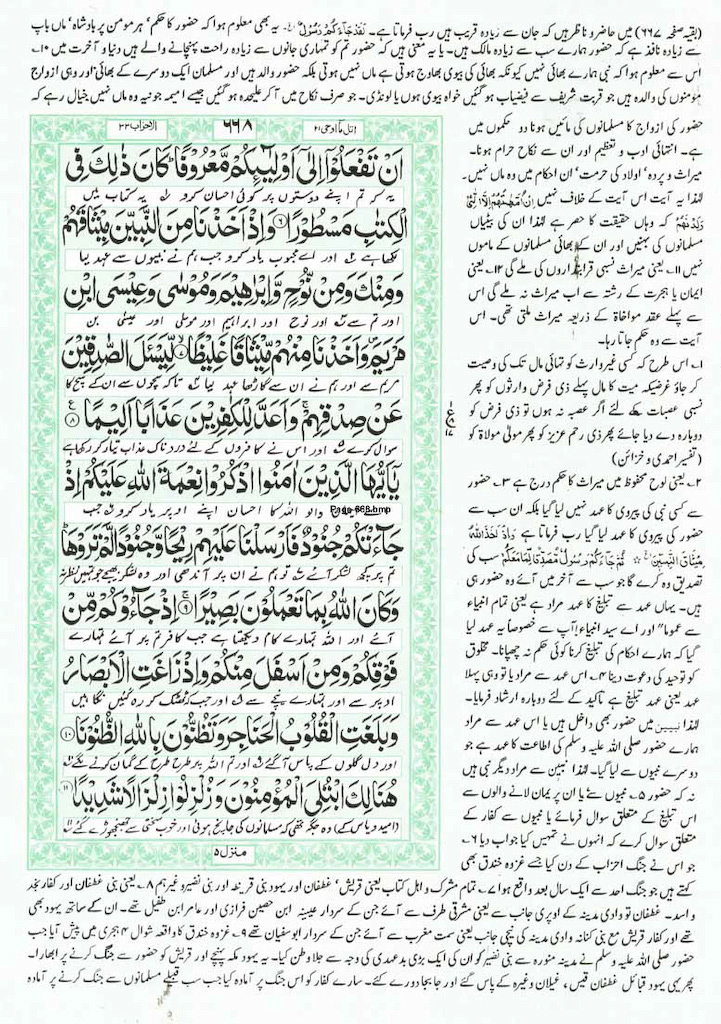 (بقیہ صفحہ ۶۶۷) میں حاضر و ناظر ہیں کہ جان سے زیادہ قریب ہیں رب فرماتا ہے۔ لَقَدْ جَآءَكُمْ رَسُوْلٌ یہ بھی معلوم ہوا کہ حضور کا حکم ہر مومن پر بادشاہ، ماں باپ
سے زیادہ نافذ ہے کہ حضور ہمارے سب سے زیادہ مالک ہیں۔ یا یہ معنی ہیں کہ حضور تم کو تمہاری جانوں سے زیادہ راحت پہنچانے والے ہیں دنیا و آخرت میں ۱۰۔
اس سے معلوم ہوا کہ نبی ہمارے بھائی نہیں کیونکہ بھائی کی بیوی بھاوج ہوتی ہے ماں نہیں ہوتی بلکہ حضور والد ہیں اور مسلمان ایک دوسرے کے بھائی، اور وہی ازواج
مومنوں کی والدہ ہیں جو قربت شریف سے فیضیاب ہو گئیں خواہ بیوی ہوں یا لونڈی۔ جو صرف نکاح میں آ کر علیحدہ ہو گئیں جیسے امیمہ جونیہ وہ ماں نہیں خیال رہے کہ
حضور کی ازواج کا مسلمانوں کی مائیں ہونا دو حکموں میں
ہے۔ انتہائی ادب و تعظیم اور ان سے نکاح حرام ہونا۔
میراث و پردہ، اولاد کی حرمت، ان احکام میں وہ ماں نہیں۔
لہذا یہ آیت اس آیت کے خلاف نہیں اِنْ اُمَّهٰتُهُمْ اِلَّا الّٰٓـِٔیْ
وَلَدْنَهُمْ کہ وہاں حقیقت کا حصر ہے لہذا ان کی بیٹیاں
مسلمانوں کی بہنیں اور ان کے بھائی مسلمانوں کے ماموں
نہیں ۱۱۔ یعنی میراث نسبی قرابتداروں کی ملے گی ۱۲۔ یعنی
ایمان یا ہجرت کے رشتہ سے اب میراث نہ ملے گی اس
سے پہلے عقد مواخاۃ کے ذریعہ میراث ملتی تھی۔ اس
آیت سے وہ حکم جاتا رہا۔
۱۔ اس طرح کہ کسی غیر وارث کو تہائی مال تک کی وصیت
کر جاؤ غرضیکہ میت کا مال پہلے ذی فرض وارثوں کو پھر
نسبی عصبات کو ملے گا لئے اگر عصبہ نہ ہوں تو ذی فرض کو
دوبارہ دے دیا جائے پھر ذی رحم عزیز کو پھر مولیٰ موالاۃ کو
(تفسیر احمدی و خزائن)
۲۔ یعنی لوح محفوظ میں میراث کا حکم درج ہے ۳۔ حضور
سے کسی نبی کی پیروی کا عہد نہیں لیا گیا بلکہ ان سب سے
حضور کی پیروی کا عہد لیا گیا رب فرماتا ہے وَاِذْ اَخَذَ اللّٰهُ
مِیْثَاقَ النَّبِیّٖنَ ثُمَّ جَآءَكُمْ رَسُوْلٌ مُّصَدِّقٌ لِّمَا مَعَكُمْ سب کی
تصدیق وہ کرے گا جو سب سے آخر میں آئے وہ حضور ہی
ہیں۔ یہاں عہد سے تبلیغ کا عہد مراد ہے یعنی تمام انبیاء
سے عموماً اور اے سید انبیاء آپ سے خصوصاً یہ عہد لیا
گیا کہ ہمارے احکام کی تبلیغ کرنا کوئی حکم نہ چھپانا۔ مخلوق
کو توحید کی دعوت دینا ۴۔ اس عہد سے مراد یا تو وہی پہلا
عہد یعنی عہد تبلیغ ہے تاکید کے لئے دوبارہ ارشاد فرمایا۔
لہذا نبیین میں حضور بھی داخل ہیں یا اس عہد سے مراد
ہمارے حضور صلی اللہ علیہ وسلم کی اطاعت کا عہد ہے جو
دوسرے نبیوں سے لیا گیا۔ لہذا نبیین سے مراد دیگر نبی ہیں
نہ کہ حضور ۵۔ نبیوں سے یا ان پر ایمان لانے والوں سے
اس تبلیغ کے متعلق سوال فرمائے یا نبیوں سے کفار کے
متعلق سوال کرے کہ انہوں نے تمہیں کیا جواب دیا ۶۔
جو اس نے جنگ احزاب کے دن کیا جسے غزوہ خندق بھی
الاحزاب ۳۳
۶۶۸
اتل ما اوحی ۲۱
اَنْ تَفْعَلُوْۤا اِلٰۤى اَوْلِیٰٓئِكُمْ مَّعْرُوْفًا كَانَ ذٰلِكَ فِی
یہ کہ تم اپنے دوستوں پر کوئی احسان کرو یہ کتاب میں
الْكِتٰبِ مَسْطُوْرًا ۶ وَاِذْ اَخَذْنَا مِنَ النَّبِیّٖنَ مِیْثَاقَهُمْ
لکھا ہے اور اے محبوب یاد کرو جب ہم نے نبیوں سے عہد لیا
وَمِنْكَ وَمِنْ نُّوْحٍ وَّاِبْرٰهِیْمَ وَمُوْسٰى وَعِیْسَى ابْنِ
اور تم سے اور نوح اور ابراہیم اور موسیٰ اور عیسیٰ بن
مَرْیَمَ وَاَخَذْنَا مِنْهُمْ مِّیْثَاقًا غَلِیْظًا ۷ لِّیَسْـَٔلَ الصّٰدِقِیْنَ
مریم سے اور ہم نے ان سے گاڑھا عہد لیا تاکہ سچوں سے ان کے سچ کا
عَنْ صِدْقِهِمْ وَاَعَدَّ لِلْكٰفِرِیْنَ عَذَابًا اَلِیْمًا ۸
سوال کرے اور اس نے کافروں کے لئے دردناک عذاب تیار کر رکھا ہے
یٰۤاَیُّهَا الَّذِیْنَ اٰمَنُوا اذْكُرُوْا نِعْمَةَ اللّٰهِ عَلَیْكُمْ اِذْ
والو اللہ کا احسان اپنے اوپر یاد کرو جب
Page-668.bmp
جَآءَتْكُمْ جُنُوْدٌ فَاَرْسَلْنَا عَلَیْهِمْ رِیْحًا وَّجُنُوْدًا لَّمْ تَرَوْهَا
تم پر کچھ لشکر آئے تو ہم نے ان پر آندھی اور وہ لشکر بھیجے جو تمہیں نظر نہ
وَكَانَ اللّٰهُ بِمَا تَعْمَلُوْنَ بَصِیْرًا ۹ اِذْ جَآءُوْكُمْ مِّنْ
آئے اور اللہ تمہارے کام دیکھتا ہے جب کافر تم پر آئے تمہارے
فَوْقِكُمْ وَمِنْ اَسْفَلَ مِنْكُمْ وَاِذْ زَاغَتِ الْاَبْصَارُ
اوپر سے اور تمہارے نیچے سے اور جب کہ ٹھٹک کر رہ گئیں نگاہیں
وَبَلَغَتِ الْقُلُوْبُ الْحَنَاجِرَ وَتَظُنُّوْنَ بِاللّٰهِ الظُّنُوْنَا ۱۰
اور دل گلوں کے پاس آ گئے اور تم اللہ پر طرح طرح کے گمان کرنے لگے
هُنَالِكَ ابْتُلِیَ الْمُؤْمِنُوْنَ وَزُلْزِلُوْا زِلْزَالًا شَدِیْدًا ۱۱
(امید و یاس کے) وہ جگہ تھی کہ مسلمانوں کی جانچ ہوئی اور خوب سختی سے جھنجھوڑے گئے
منزل ۵
کہتے ہیں جو جنگ احد سے ایک سال بعد واقع ہوا ۷۔ تمام مشرک و اہل کتاب یعنی قریش، غطفان اور یہود بنی قریظہ اور بنی نضیر وغیرہم ۸۔ یعنی بنی غطفان اور کفار نجد
و اسد۔ غطفان تو وادی مدینہ کے اوپری جانب سے یعنی مشرقی طرف سے آئے جن کے سردار عیینہ ابن حصین فرازی اور عامر ابن طفیل تھے۔ ان کے ساتھ یہود بھی
تھے اور کفار قریش مع بنی کنانہ وادی مدینہ کی نچلی جانب یعنی سمت مغرب سے آئے جن کے سردار ابوسفیان تھے ۹۔ غزوہ خندق کا واقعہ شوال ۴ ہجری میں پیش آیا جب
حضور صلی اللہ علیہ وسلم نے مدینہ منورہ سے بنی نضیر کو ان کی ایک بڑی بدعہدی کی وجہ سے جلا وطن کیا۔ یہ یہود مکہ پہنچے اور قریش کو حضور سے جنگ کرنے پر ابھارا۔
پھر یہی یہود قبائل غطفان قیس، غیلان وغیرہ کے پاس گئے اور جابجا دورے کئے۔ سارے کفار کو اس جنگ پر آمادہ کیا جب سب قبیلے مسلمانوں سے جنگ کرنے پر آمادہ